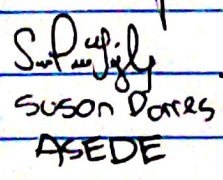 Suson Dorres
ASEDE